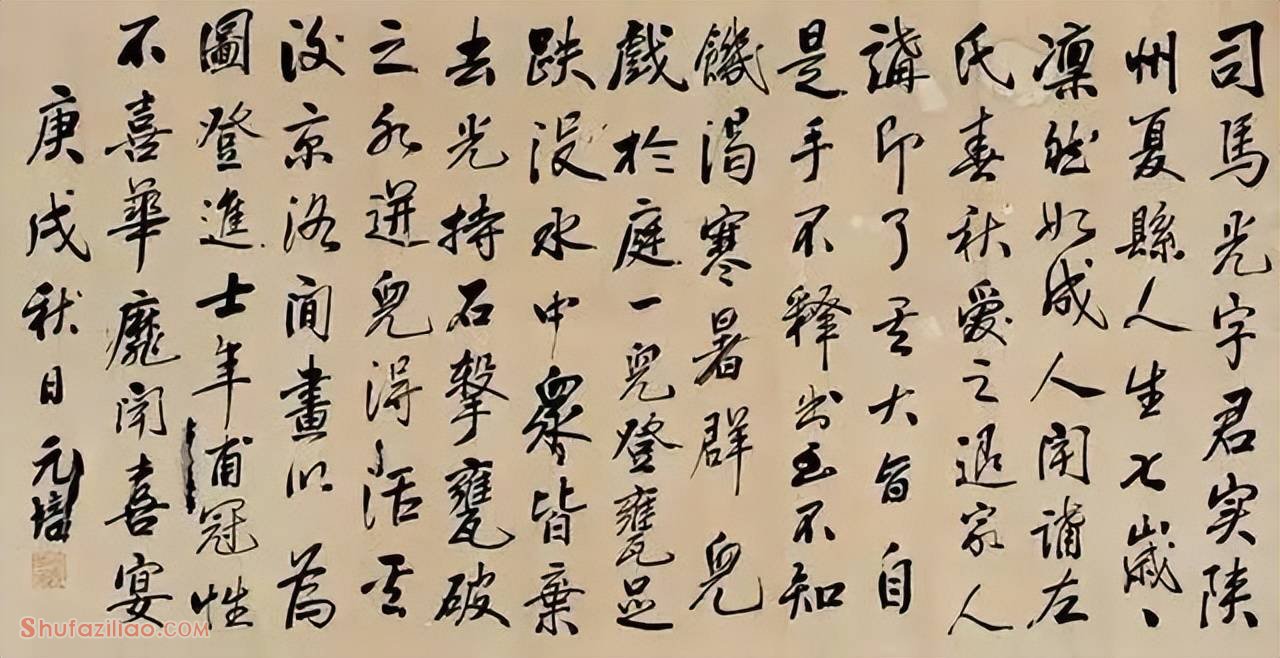 司馬光字君实陕
州夏縣人生七歲、
凛然如成人闻诵左
氏春秋爱之退家人
講即了其大旨自
是手不释书至不知
饑渴寒暑群兒
戲於庭一兒登甕足
跌没水中眾皆棄
去光持石擊甕破
之水迸兒得活其
後京洛间畫以為
圖登進士年甫冠性
不喜華靡闻喜宴
庚戌秋日元培
Shufaziliao.COM